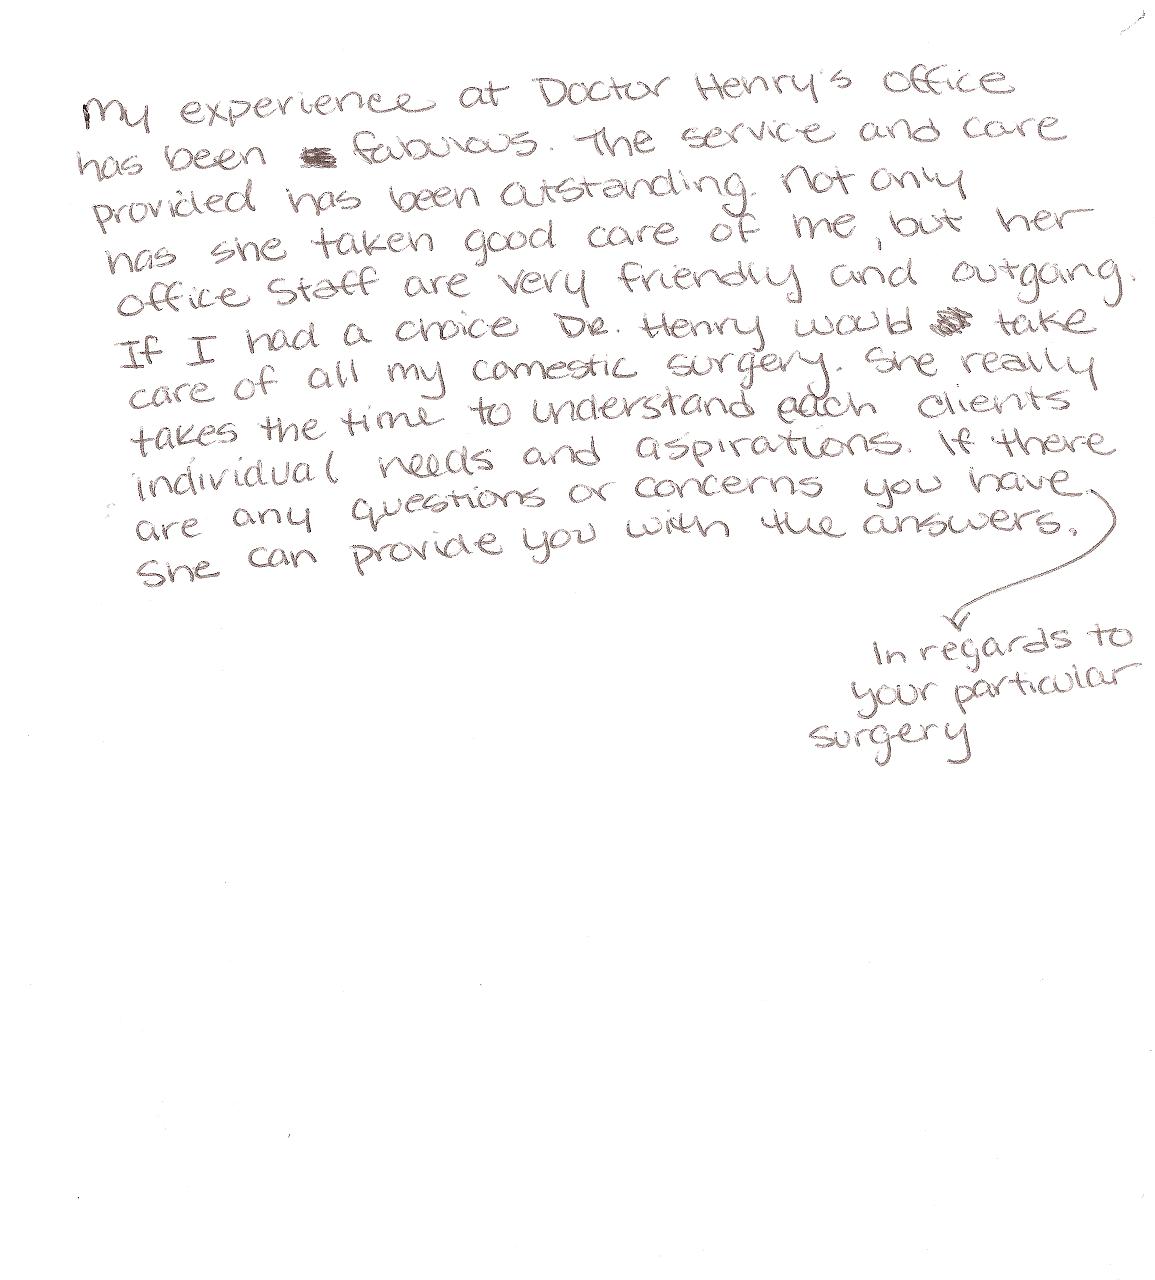 My experience at Doctor Henry's office
has been fabulous. The service and care
provided has been outstanding. Not only
has she taken good care of me, but her
office staff are very friendly and outgoing.
If I had a choice Dr. Henry would take
care of all my comestic surgery. She really
takes the time to understand each clients
individual needs and aspirations. If there
are any questions or concerns you have,
She can provide you with the answers.
In regards to
your particular
surgery